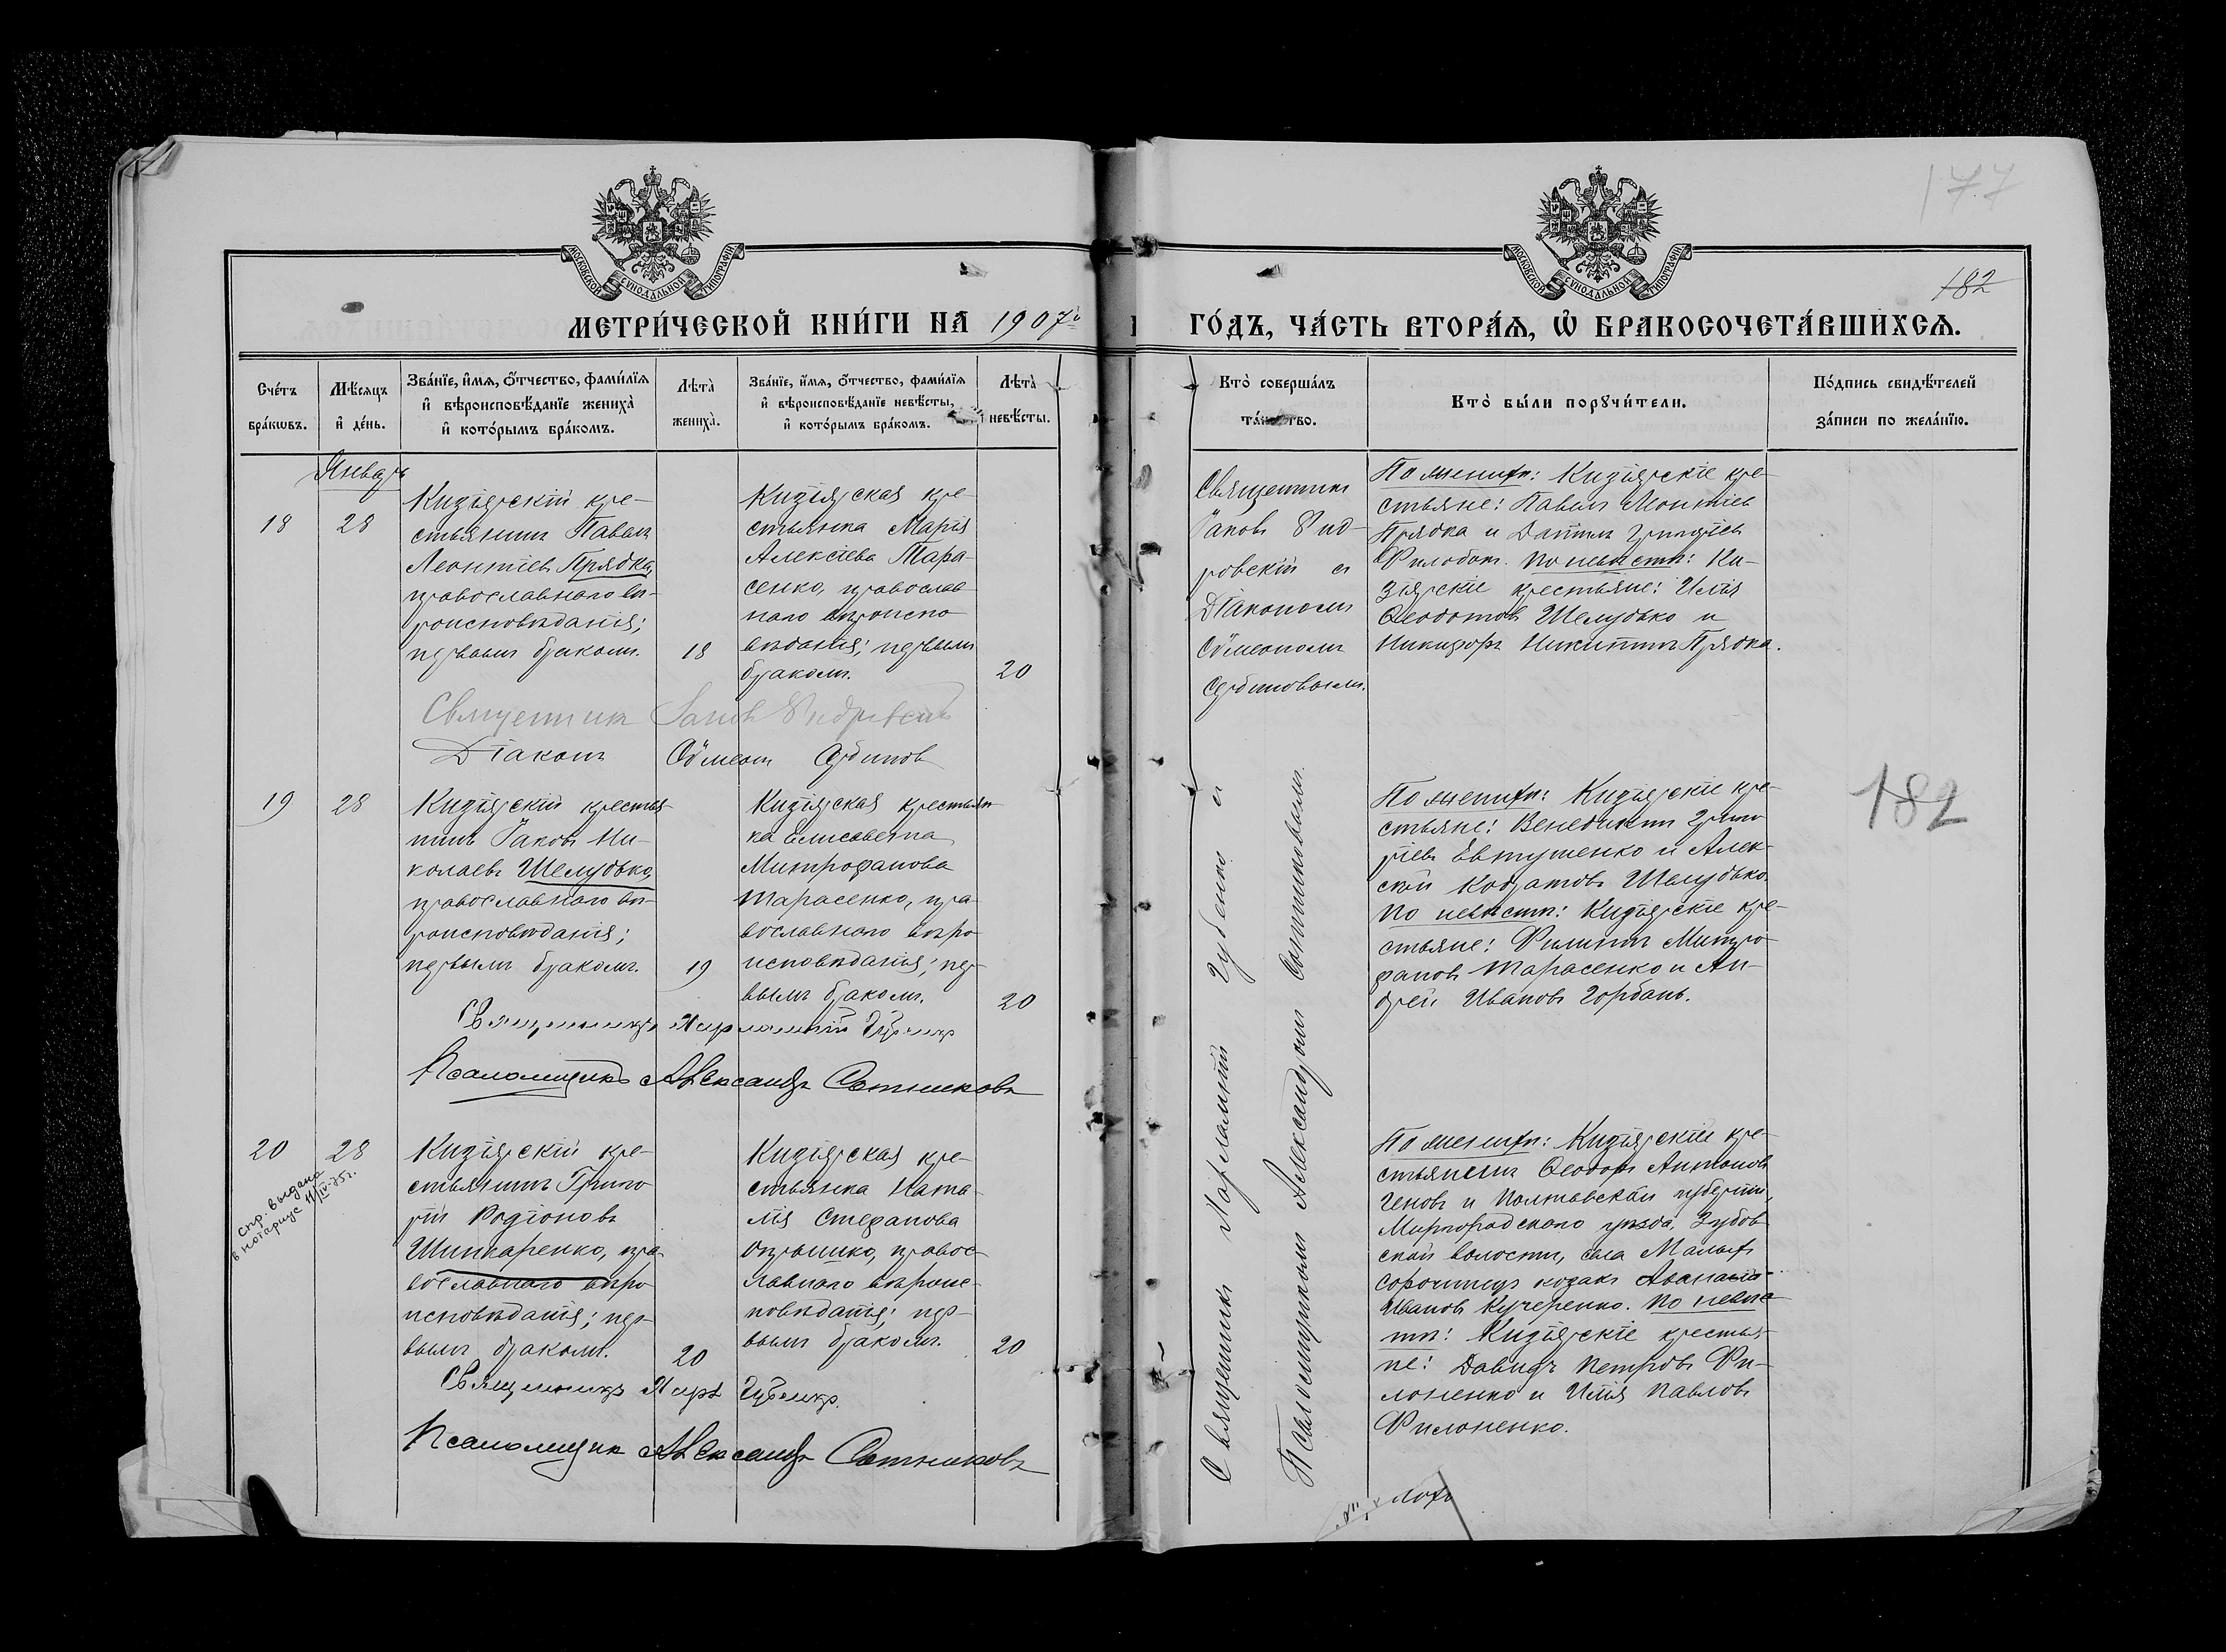 177
182
МОСКОВСКОЙ СУНОДАЛЬНОЙ ТИПОГРАФІИ
МОСКОВСКОЙ СУНОДАЛЬНОЙ ТИПОГРАФІИ
МЕТРИ́ЧЕСКОЙ КНИ́ГИ НА 1907й
ГО́ДЪ, ЧА́СТЬ ВТОРА́Я, Ѡ҆ БРАКОСОЧЕТА́ВШИХСЯ.
Сче́тъ
бра́кѡвъ.
Мѣ́сяцъ
и҆ де́нь.
Зва́нїе, и҆́мя, ѻ҆́тчество, фами́лїя
и҆ вѣроисповѣ́данїе жениха̀
и҆ кото́рымъ бра́комъ.
Лѣта̀
жениха̀.
Зва́нїе, и҆́мя, ѻ҆́тчество, фами́лїя
и҆ вѣроисповѣ́данїе невѣ́сты,
и҆ кото́рымъ бра́комъ.
Лѣта̀
невѣ́сты.
Кто̀ соверша́лъ
та́инство.
Кто̀ бы́ли порꙋчи́тели.
По́дпись свидѣ́телей
за́писи по жела́нїю.
Январь
18
28
Кизіярскій кре-
стьянинъ Павелъ
Леонтіевъ Прядка,
православнаго вѣ-
роисповѣданія;
первымъ бракомъ.
18
Кизіярская кре-
стьянка Марія
Алексіева Тара-
сенко, православ
наго вѣроиспо
вѣданія; первымъ
бракомъ.
20
Священникъ
Іаковъ
ровскій съ
Діакономъ
Сѵмеономъ
Сербиновымъ.
По женихѣ: Кизіярскіе кре-
стьяне: Павелъ Леонтіевъ
Прядка и Даніилъ Григоріевъ
По невѣстѣ: Ки-
зіярскіе крестьяне: Илія
Ѳеодотовъ Шелудько и
Никифоръ Никитинъ Прядка.
Священникъ Іаковъ
Діаконъ Сѵмеонъ Сербиновъ
19
28
Кизіярскій крестья-
нинъ Іаковъ Ни-
колаевъ Шелудько,
православнаго вѣ-
роисповѣданія;
первымъ бракомъ.
19
Кизіярская крестьян
ка Елисавета
Митрофанова
Тарасенко, пра
вославнаго вѣро
исповѣданія; пер-
вымъ бракомъ.
20
Священникъ Харлампій Губенко и
Псаломщикомъ Александромъ Сотниковымъ.
По женихѣ: Кизіярскіе кре-
стьяне: Венедиктъ Григо
ріевъ Евтушенко и Алек-
сѣй Кодратовъ Шелудько.
По невѣстѣ: Кизіярскіе кре-
стьяне: Филиппъ Митро-
фановъ Тарасенко и Ан-
дрей Ивановъ Горбань.
182
Священникъ Харлампій Губенко
Псаломщикъ Александръ Сотниковъ
20
28
спр. выдана
в нотариус 11/IV-75г.
Кизіярскій кре-
стьянинъ Григо
рій Родіоновъ
Шинкаренко, пра
вославнаго вѣро
исповѣданія; пер-
вымъ бракомъ.
20
Кизіярская кре-
стьянка Ната-
лія Стефанова
Опрышко, правос-
лавнаго вѣроис-
повѣданія; пер-
вымъ бракомъ.
20
По женихѣ: Кизіярскіе кре-
стьянинъ Ѳеодоръ Антоновъ
и Полтавской губерніи,
Миргородскаго уѣзда, Зубов
ской волости, села Малыхъ
Сорочинцъ козакъ Аѳанасій
Ивановъ Кучеренко. По невѣс
тѣ: Кизіярскіе крестья-
не: Давидъ Петровъ Фи-
лоненко и Илія Павловъ
Филоненко.
Священникъ Харл Губенко.
Псаломщикъ Александръ Сотниковъ